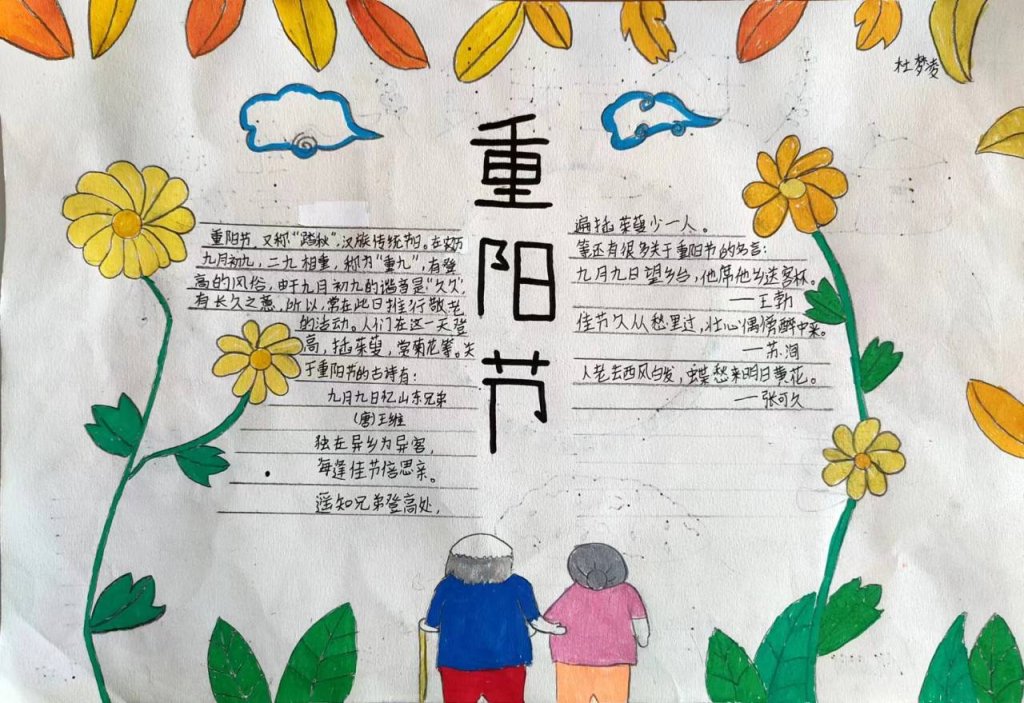 杜梦
重阳节
重阳节,又称“踏秋”,汉族传统节日。在农历
九月初九,二九相重,称为“重九”,有登
高的风俗,由于九月初九的谐音是“久久”,
有长久之意,所以,常在此日推行敬老
的活动。人们在这一天登
高,插茱萸,赏菊花等。关
于重阳节的古诗有:
九月九日忆山东兄弟
(唐)王维
独在异乡为异客,
每逢佳节倍思亲。
遥知兄弟登高处,
遍插茱萸少一人。
等还有很多关于重阳节的名言:
九月九日望乡台,他席他乡送客杯。
——王勃
佳节久从愁里过,壮心偶傍醉中来。
—苏泂
人老去西风白发,蝶愁来明日黄花。
—张可久